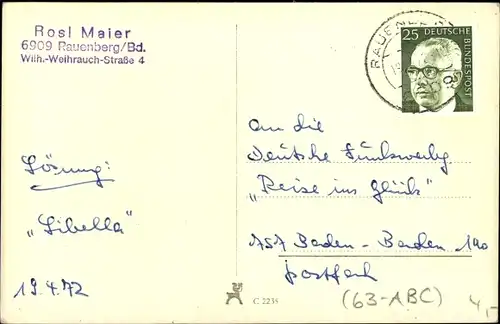 Rosl Maier
6909 Rauenberg/Bd.
Wilh.-Weihrauch-Straße 4
RAUENB
25 DEUTSCHE BUNDESPOST
An die
Deutsche Funkwerbg
"Reise ins Glück"
757 Baden-Baden 140
Postfach
Lösung:
"Libella"
19.4.72
C 2235
(63-ABC)
4,-